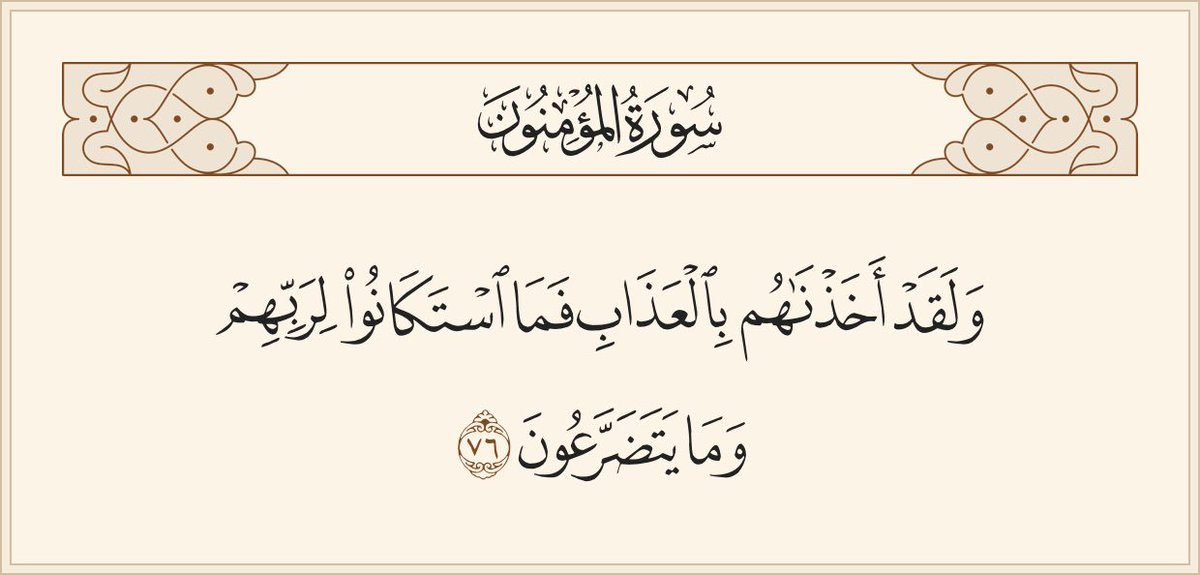 سُورَةُ المُؤْمِنُونَ
وَلَقَدْ أَخَذْنَٰهُم بِٱلْعَذَابِ فَمَا ٱسْتَكَانُوا۟ لِرَبِّهِمْ
وَمَا يَتَضَرَّعُونَ ٧٦